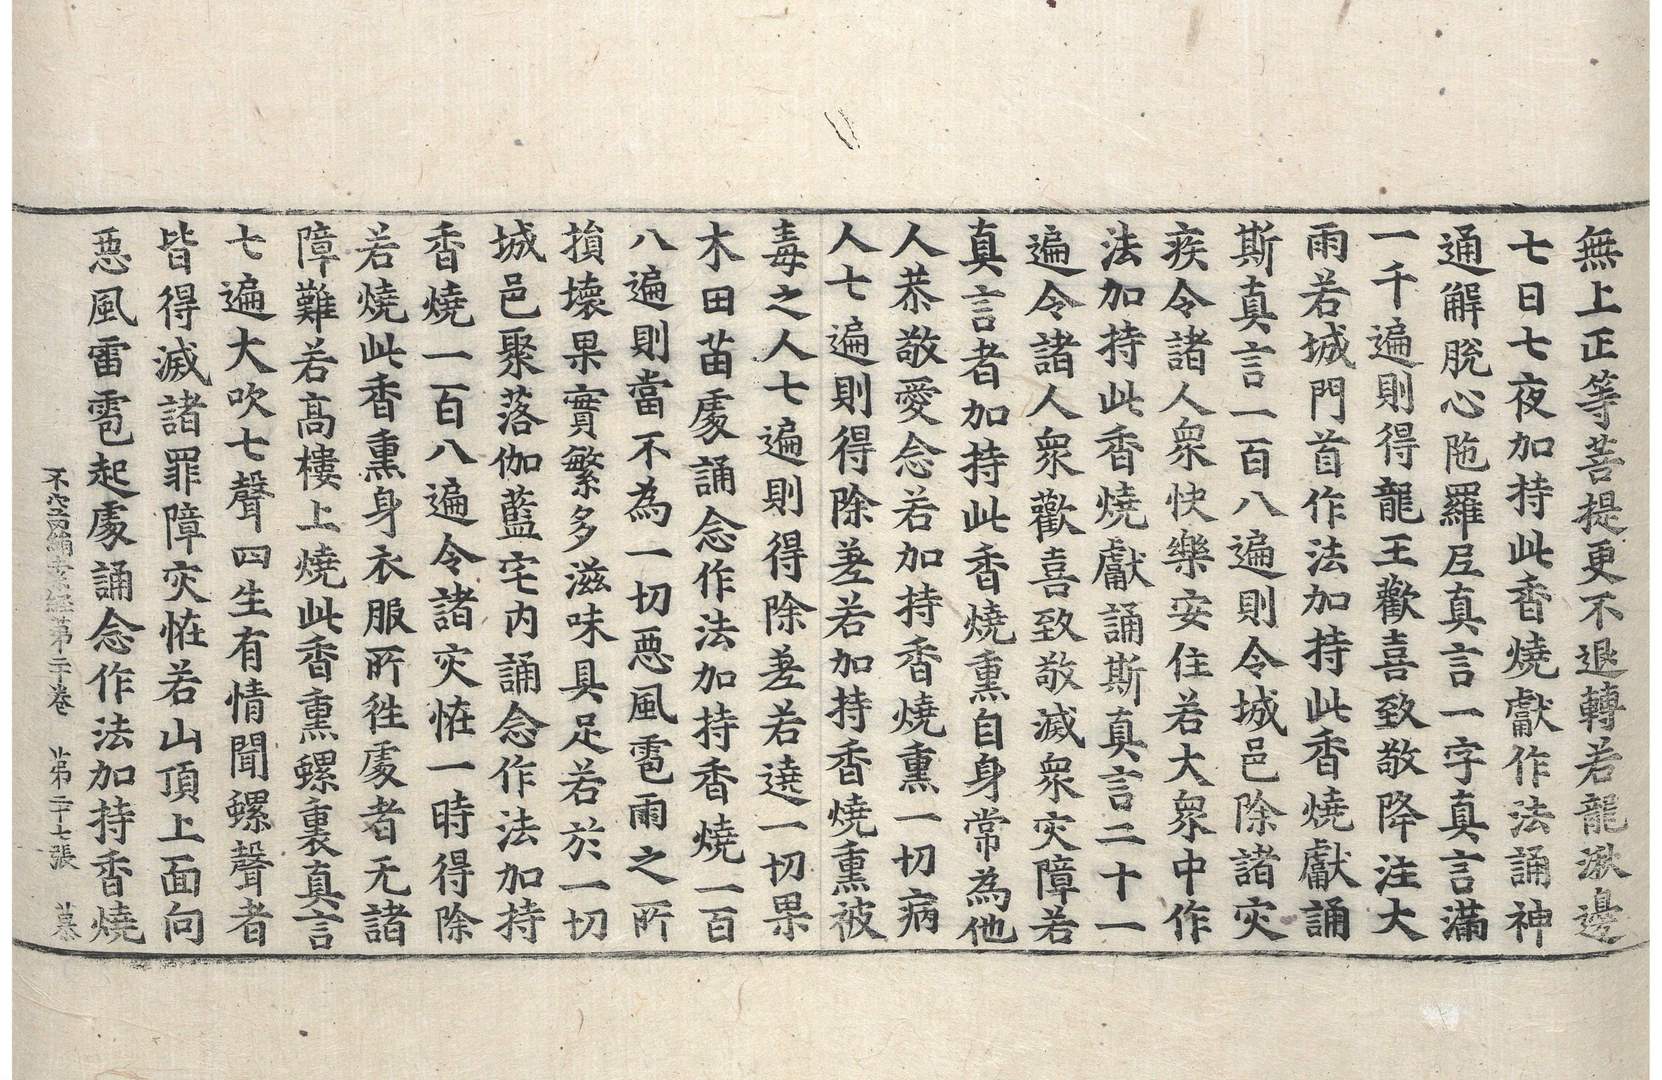 無上正等菩提更不退轉若龍湫邊
七日七夜加持此香燒獻作法誦神
通解脫心陁羅尼真言一字真言滿
一千遍則得龍王歡喜致敬降注大
雨若城門首作法加持此香燒獻誦
斯真言一百八遍則令城邑除諸灾
疾令諸人衆快樂安住若大衆中作
法加持此香燒獻誦斯真言二十一
遍令諸人衆歡喜致敬滅衆灾障若
真言者加持此香燒熏自身常為他
人恭敬愛念若加持香燒熏一切病
人七遍則得除差若加持香燒熏被
毒之人七遍則得除差若遶一切果
木田苗處誦念作法加持香燒一百
八遍則當不為一切惡風雹雨之所
損壞果實繁多滋味具足若於一切
城邑聚落伽藍宅內誦念作法加持
香燒一百八遍令諸灾恠一時得除
若燒此香熏身衣服所往處者无諸
障難若高樓上燒此香熏螺裏真言
七遍大吹七聲四生有情聞螺聲者
皆得滅諸罪障灾恠若山頂上面向
惡風雷雹起處誦念作法加持香燒
不空羂索經第二十卷 第二十七張 慕